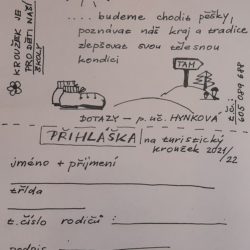 KROUŽEK JE
PRO DĚTI NAŠÍ
ŠKOLY
.... budeme chodit pěšky,
poznávat náš kraj a tradice
zlepšovat svou tělesnou
kondici
TAM
DOTAZY – p. uč. HYNKOVÁ
t.č.:
PŘIHLÁŠKA na turistický
kroužek 2021/
22
jméno + příjmení
třída
t. číslo rodičů:
podpis